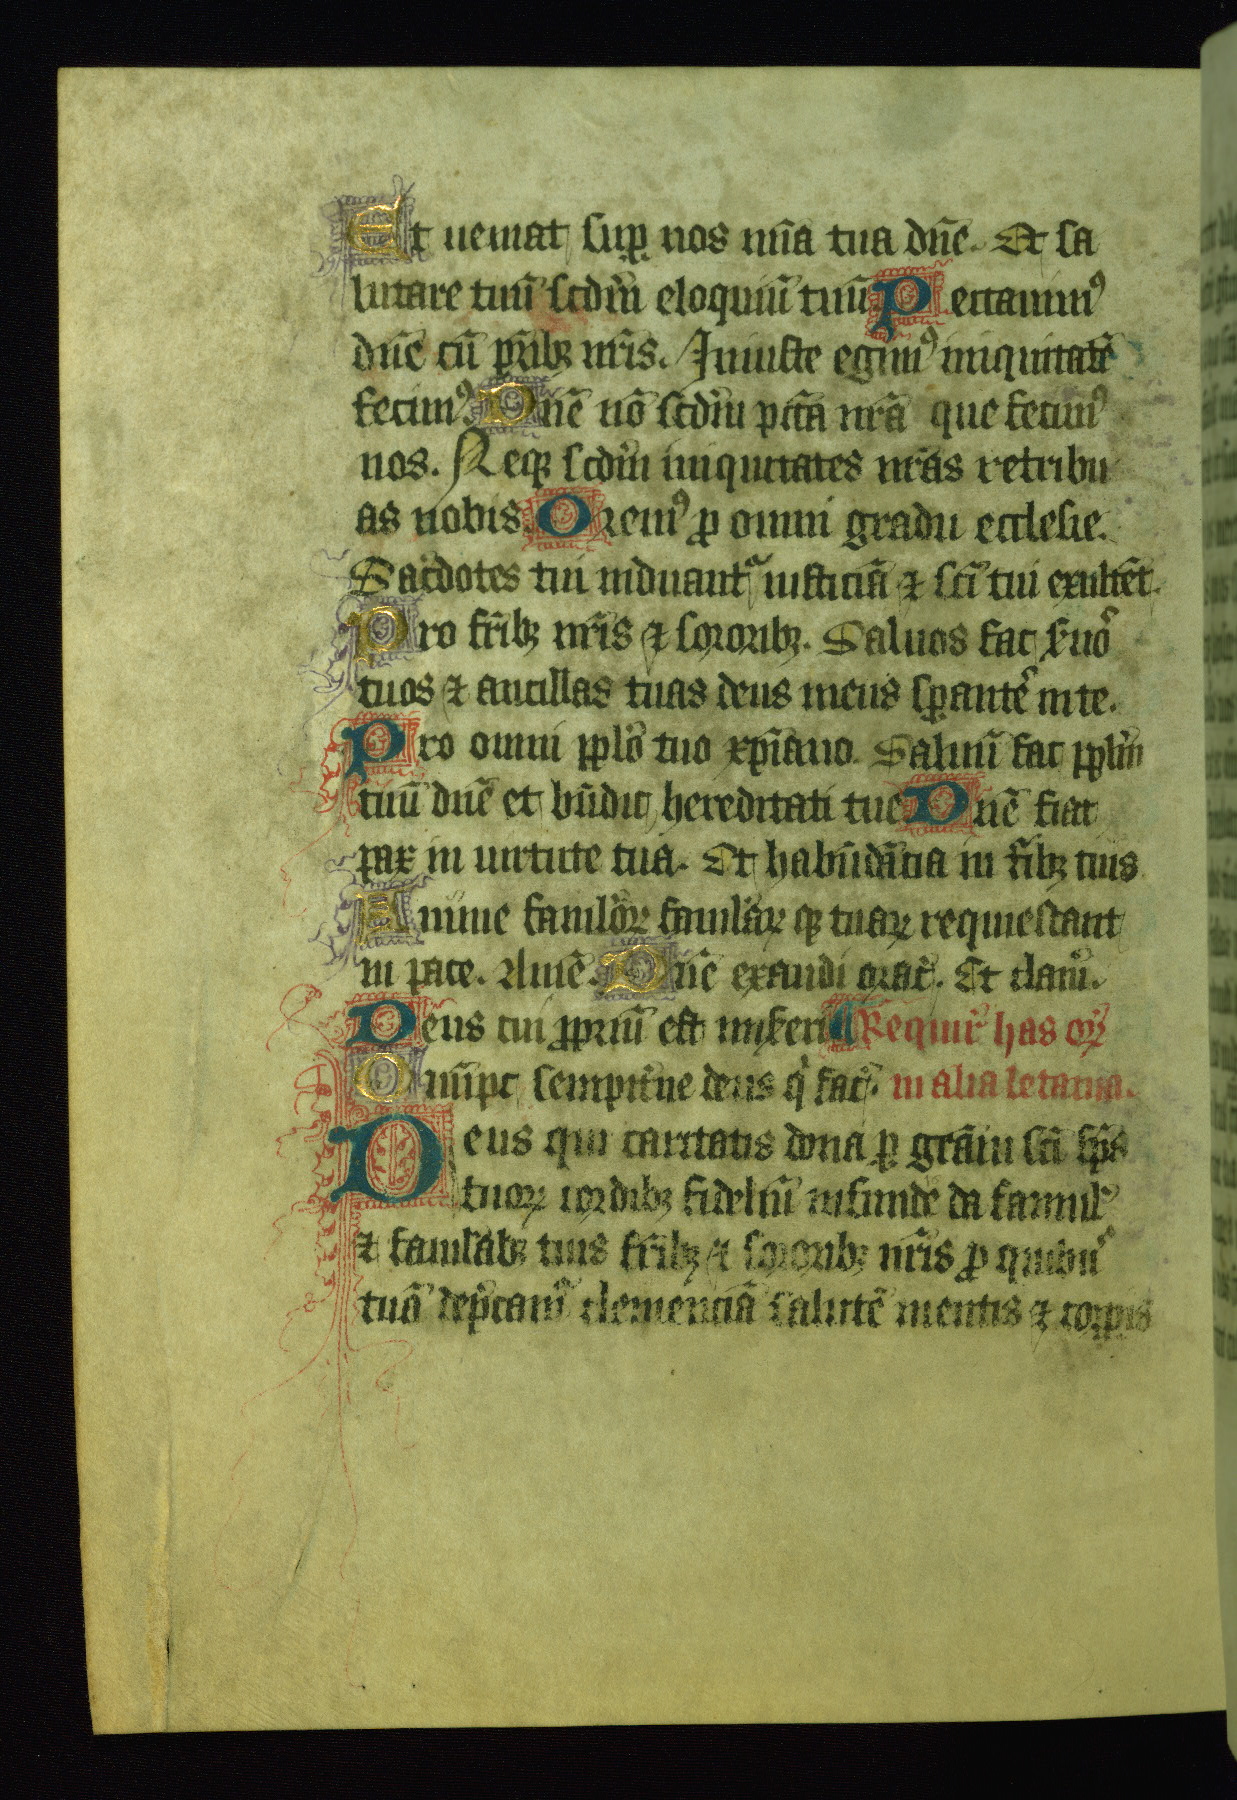 Et ueniat sup̱ nos mīa tua dn̄e. Et sa
lutare tuū scdm̄ eloquiū tuū Peccauimꝰ
dn̄e cū pr̄ibꝫ nr̄is. Iniuste egimꝰ iniquitatē
fecimꝰ Dnē nō scdm̄ pctā nr̄a que fecimꝰ
nos. Neqꝫ scdm̄ iniquitates nr̄as retribu
as nobis. Oremꝰ ꝓ omni gradu ecclesie.
Sac̄dotes tui induantᷣ iusticiā ⁊ sc̄i tui exultēt.
Pro fr̄ibꝫ nr̄is ⁊ sororibꝫ. Saluos fac ẜuos
tuos ⁊ ancillas tuas deus meus sꝑantes in te.
Pro omni ppl̄o tuo xp̄iano. Saluū fac ppl̄m
tuū dn̄e et bn̄dic hereditati tue Dnē fiat
pax in uirtute tua. Et habūdācia in tr̄ibꝫ tuis
Anime famlōꝝ famlāꝝ qꝫ tuaꝝ requiescant
in pace. Amē. Dnē exaudi orac̄. Et clam̄.
Deus cui ꝓpriū est miẜeri ¶ Requir̄ has or̄
Omīpt sempit̄ne deus q̇ fac̄. in alia letania.
Deus qui caritatis dona ꝑ grām sc̄i sp̄s
tuoꝝ cordibꝫ fideliū infunde da famul̄
⁊ famlābꝫ tuis fr̄ibꝫ ⁊ sororibꝫ nr̄is ꝓ quibus
tuā dep̄camᷤ clemenciā salutē mentis ⁊ corꝑis